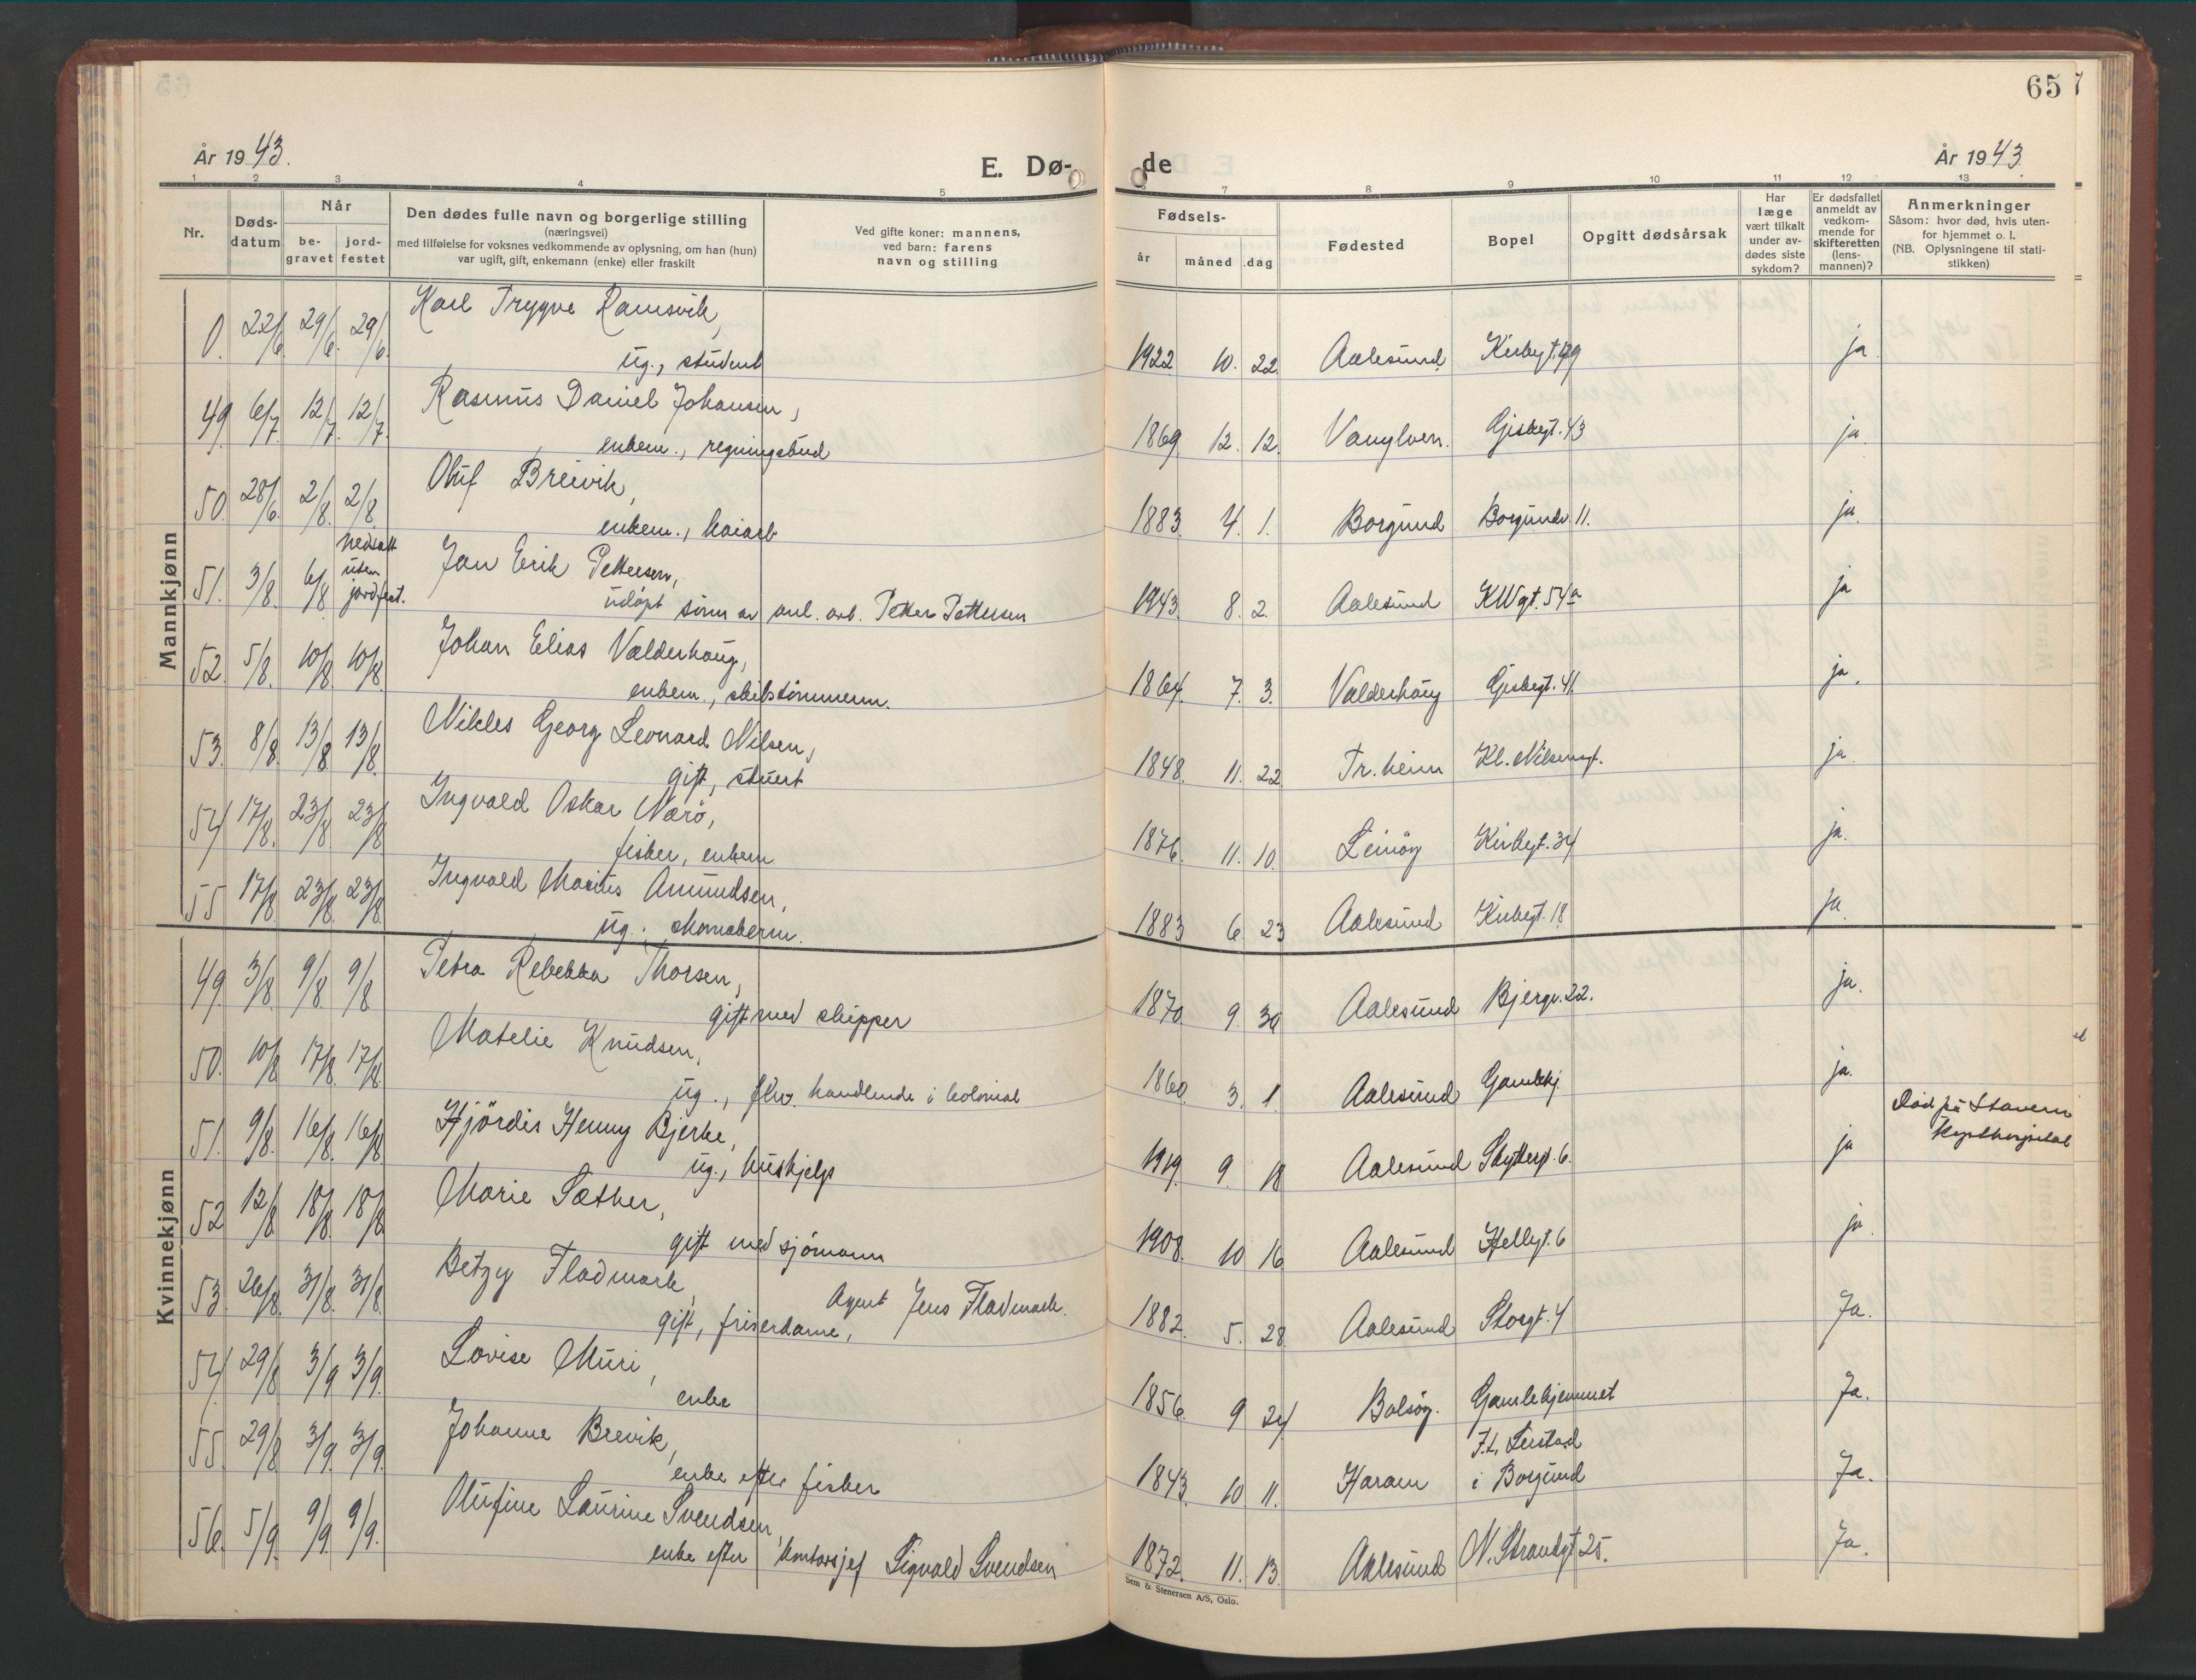 65
År 1943.
E. Dø-
de
År 1943.
1 2 3 4 5
7 8 9 10 11 12 13
Nr.
Døds-
datum
Når
be-
gravet
jord-
festet
Den dødes fulle navn og borgerlige stilling
(næringsvei)
med tilføielse for voksnes vedkommende av oplysning, om han (hun)
var ugift, gift, enkemann (enke) eller fraskilt
Ved gifte koner: mannens,
ved barn: farens
navn og stilling
Fødsels-
år måned dag
Fødested
Bopel
Opgitt dødsårsak
Har
læge
vært tilkalt
under av-
dødes siste
sykdom?
Er dødsfallet
anmeldt av
vedkom-
mende for
skifteretten
(lens-
mannen)?
Anmerkninger
Såsom: hvor død, hvis uten-
for hjemmet o. l.
(NB. Oplysningene til stati-
stikken)
Mannkjønn
0. 22/6. 29/6. 29/6. Karl Trygve Ramsvik,
ug., student 1922 10. 22. Aalesund. Kirkegt. ja.
49. 6/7. 12/7. 12/7. Rasmus Daniel Johansen,
enkem., regningsbud 1869. 12. 12. Vanylven. Gjskegt. 43 ja.
50. 28/6. 2/8. 2/8. Oluf Breivik,
enkem., kaiarb 1883. 4. 1. Borgund Borgundv. 11. ja.
51. 3/8. 6/8 nedsatt
uten
jordfest. Jan Erik Pettersen,
udøpt sønn av anl. arb. Petter Pettersen 1943. 8. 2. Aalesund KWgt. 54a ja
52. 5/8. 10/8. 10/8. Johan Elias Valderhaug,
enkem., skibstømmerm. 1864. 7. 3. Valderhaug Gjskegt. 41. ja.
53. 8/8. 13/8. 13/8. Nikles Georg Leonard Nilsen,
gift, stuert 1848. 11. 22 Tr.heim Kl. Nilsensgt. ja.
54. 17/8. 23/8 23/8 Ingvald Oskar Nærø,
fisker, enkem. 1876. 11. 10. Leinøy Kirkegt. 34 ja.
55 17/8. 23/8. 23/8. Ingvald Marius Amundsen,
ug. skomakerm. 1883 6 23 Aalesund Kirkegt. 18 ja.
Kvinnekjønn
49. 3/8. 9/8. 9/8 Petra Rebekka Thorsen,
gift med skipper 1870. 9. 30 Aalesund Bjergv. 22. ja.
50. 10/8 17/8. 17/8. Matelie Knudsen,
ug., fhv. handlende i kolonial 1860. 3. 1. Aalesund Gamlehj. ja.
51. 9/8. 16/8. 16/8. Hjørdis Henny Bjerke,
ug., hushjelp 1919. 9. 18 Aalesund Skyttergt. 6. ja Død på Stavern
Kysthospital
52 12/8 18/8. 18/8 Marie Sæther,
gift med sjømann 1908. 10 16 Aalesund Hellegt. 6 ja.
53. 26/8. 31/8. 31/8. Betzy Fladmark,
gift, friserdame, Agent Jens Fladmark. 1882. 5. 28. Aalesund Storgt. 4 Ja.
54. 29/8 3/9 3/9. Lovise Muri,
enke 1856. 9 24 Bolsøy. Gamlehjemmet Ja.
55. 29/8 3/9. 3/9. Johanne Brevik,
enke efter fisker 1843. 10 11. Haram
i Borgund Ja.
56. 5/9. 9/9. 9/9. Olufine Laurine Svendsen,
enke efter kontorsjef Sigvald Svendsen 1872. 11. 13. Aalesund N. Strandgt 25. Ja.
Sem & Stenersen A/S, Oslo.